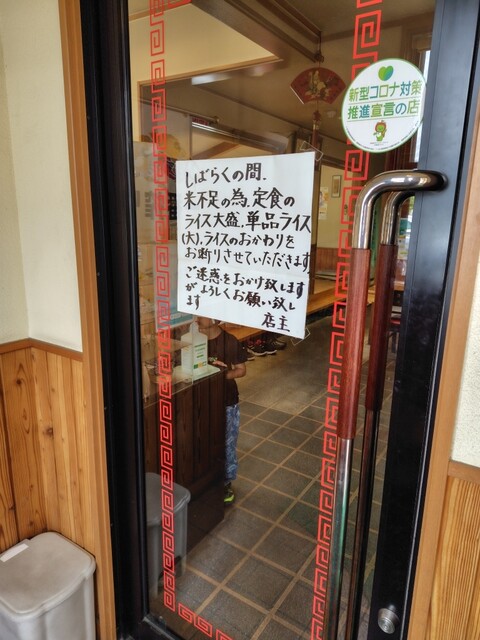 新型コロナ対策
推進宣言の店
しばらくの間、
米不足の為、定食の
ライス大盛、単品ライス
(大)、ライスのおかわりを
お断りさせていただきます
ご迷惑をおかけ致します
がよろしくお願い致し
ます
店主